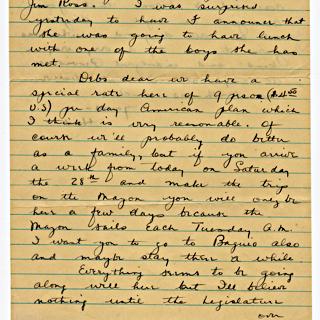 Jim Ross. I was surprised
yesterday to have I announce that
she was going to have lunch
with one of the boys she has
met.
Debs dear we have a
special rate here of 9 pesos ($4.50
U.S) per day American plan which
I think is very reasonable. Of
course we'll probably do better
as a family, but if you arrive
a week from today on Saturday
the 28th and make the trip
on the Mayon you will only be
here a few days because the
Mayon sails each Tuesday A.M.
I want you to go to Baguio also
and maybe stay there a while
Everything seems to be going
along well here but I'll believe
nothing until the Legislature
over